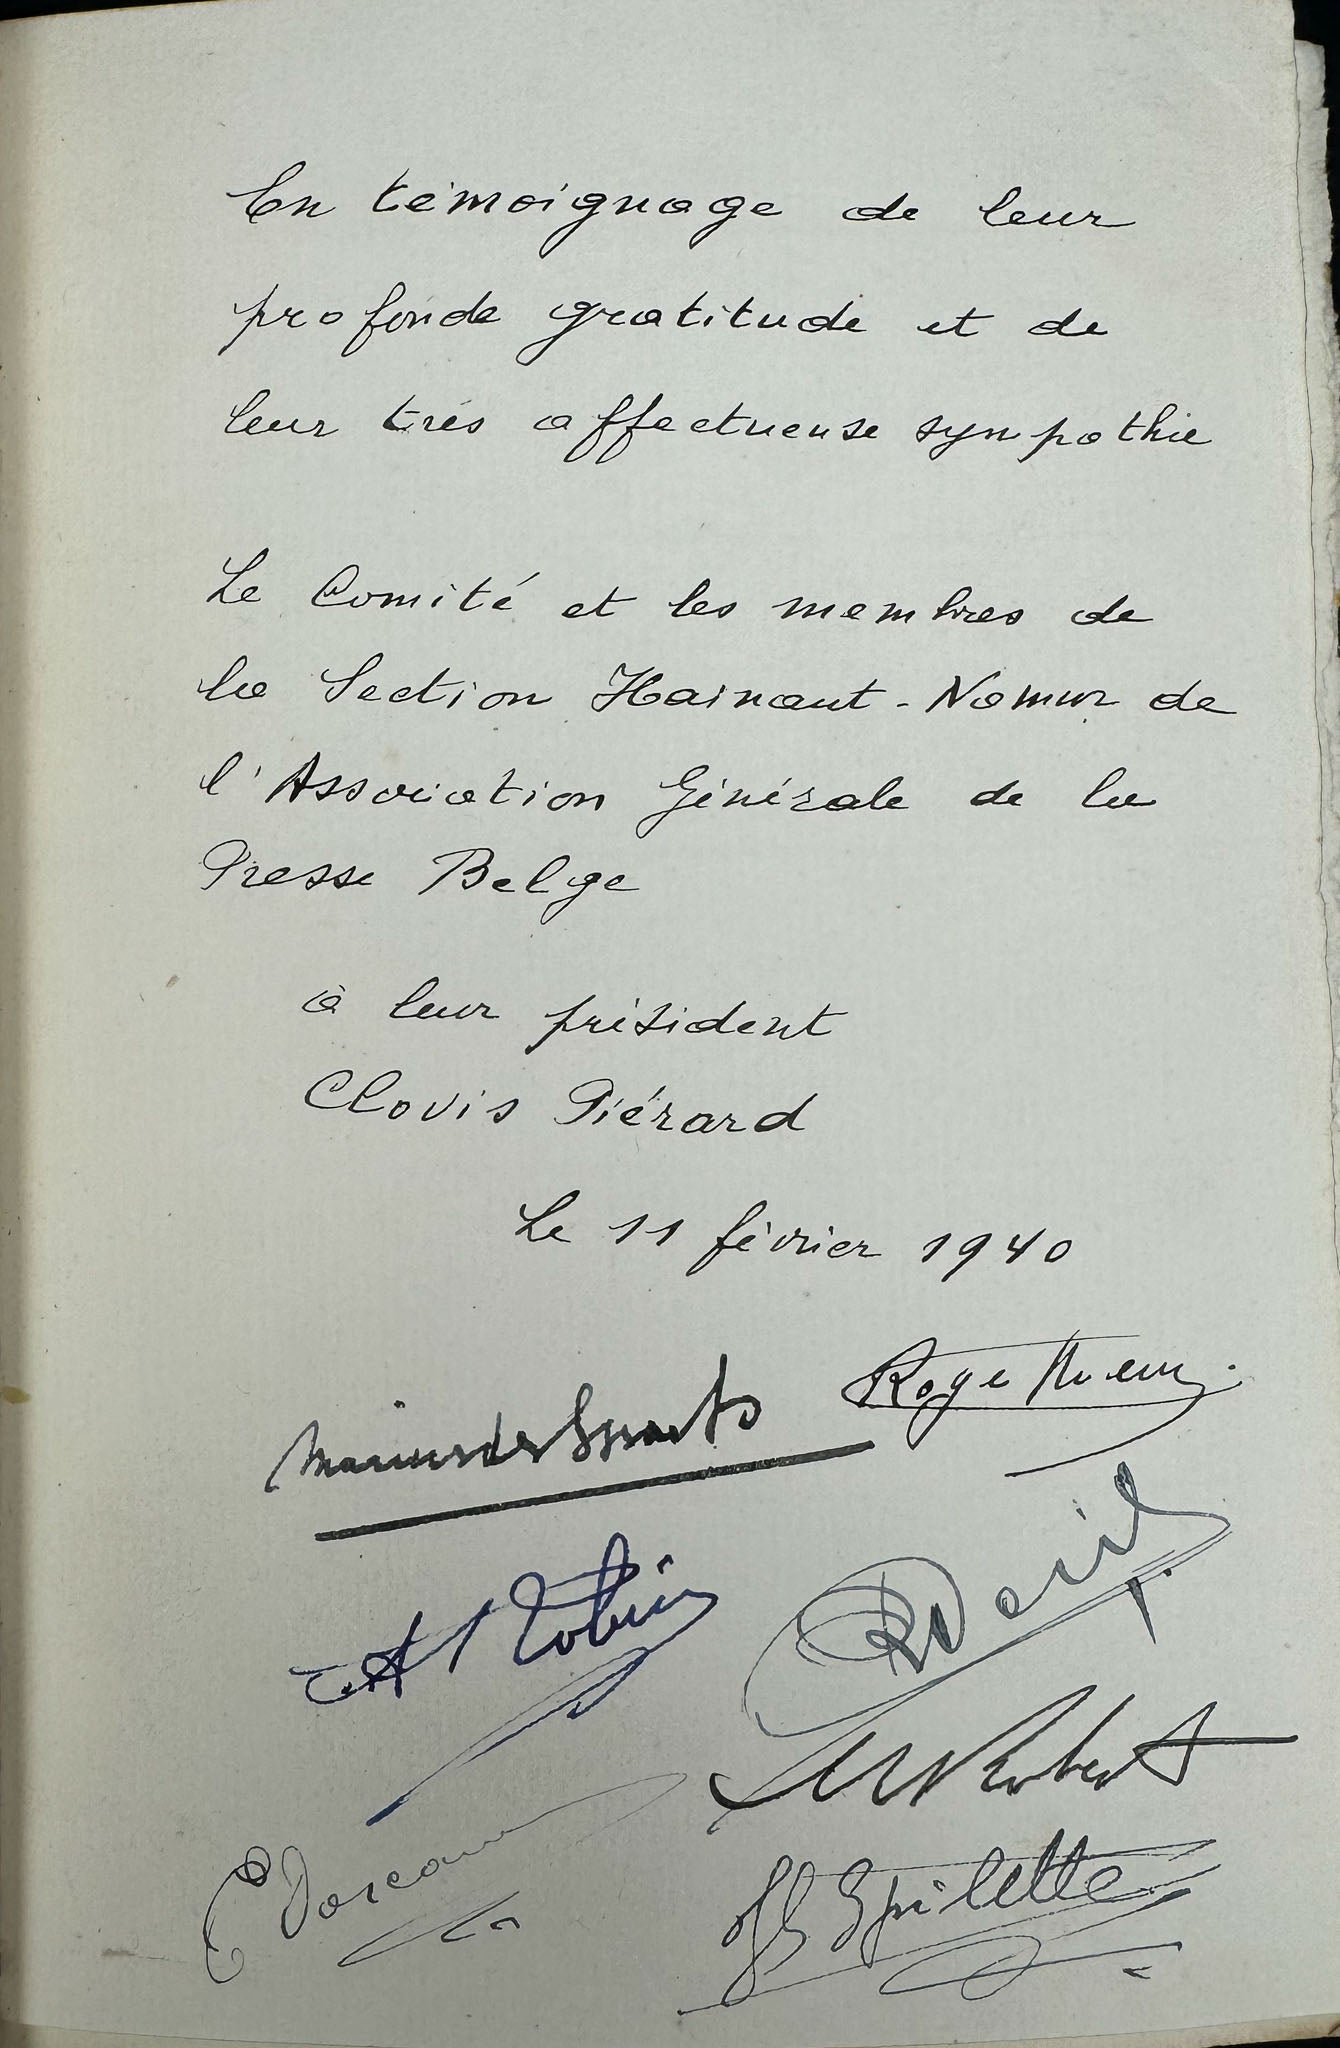 En témoignage de leur
profonde gratitude et de
leur très affectueuse sympathie
Le Comité et les membres de
la Section Hainaut - Namur de
l'Association Générale de la
Presse Belge
à leur président
Clovis Piérard
Le 11 février 1940
Roger
Robin
Robert
Spilette